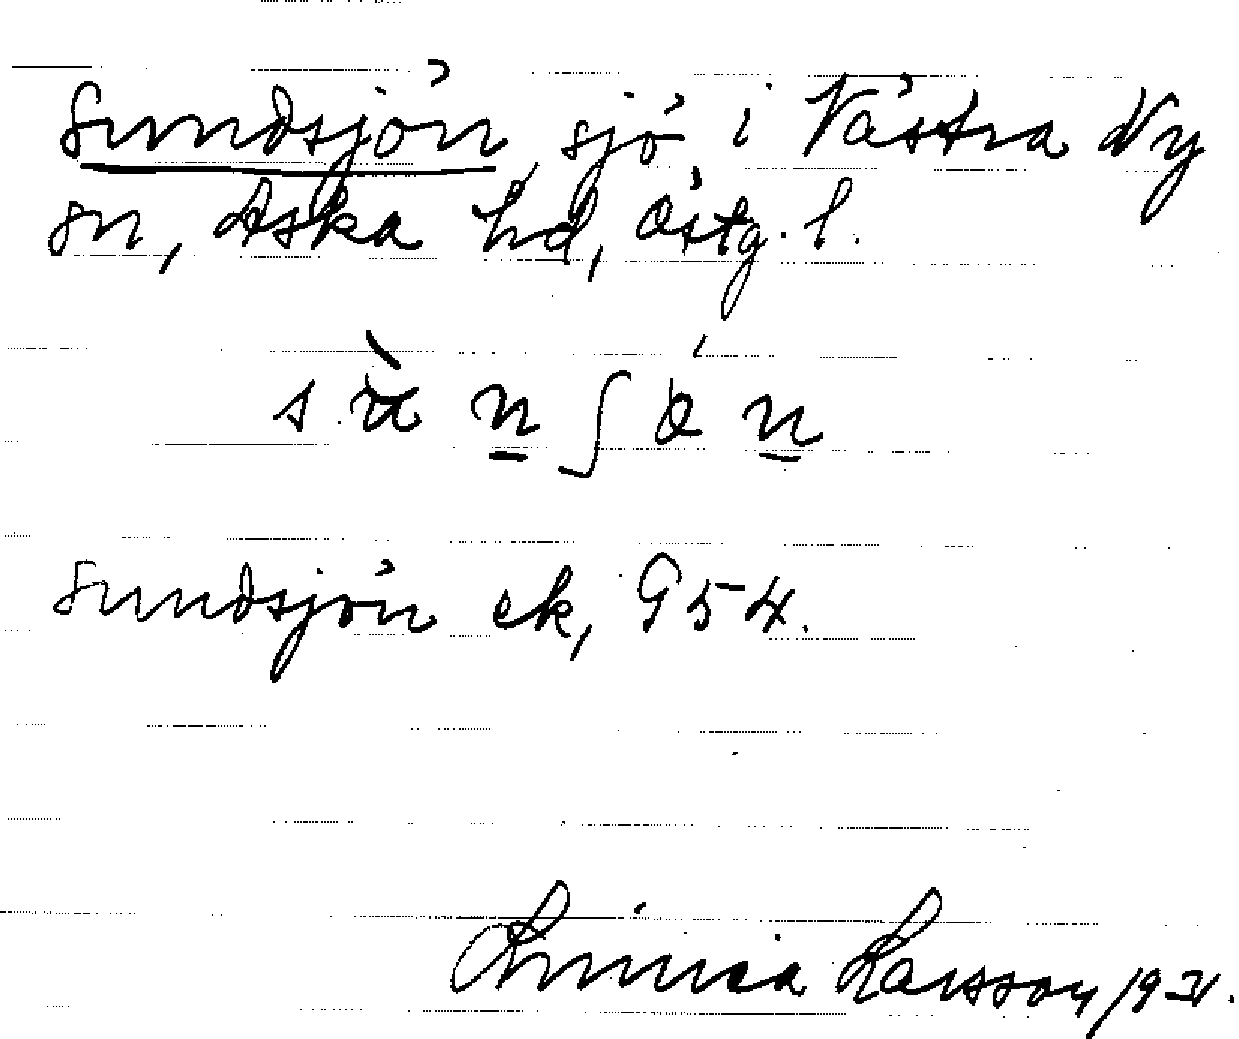 Sundsjön, sjö, i Västra Ny
sn, Aska hd, Östg. l.
Sundsjön ek, 954.
Larsson, 1931.